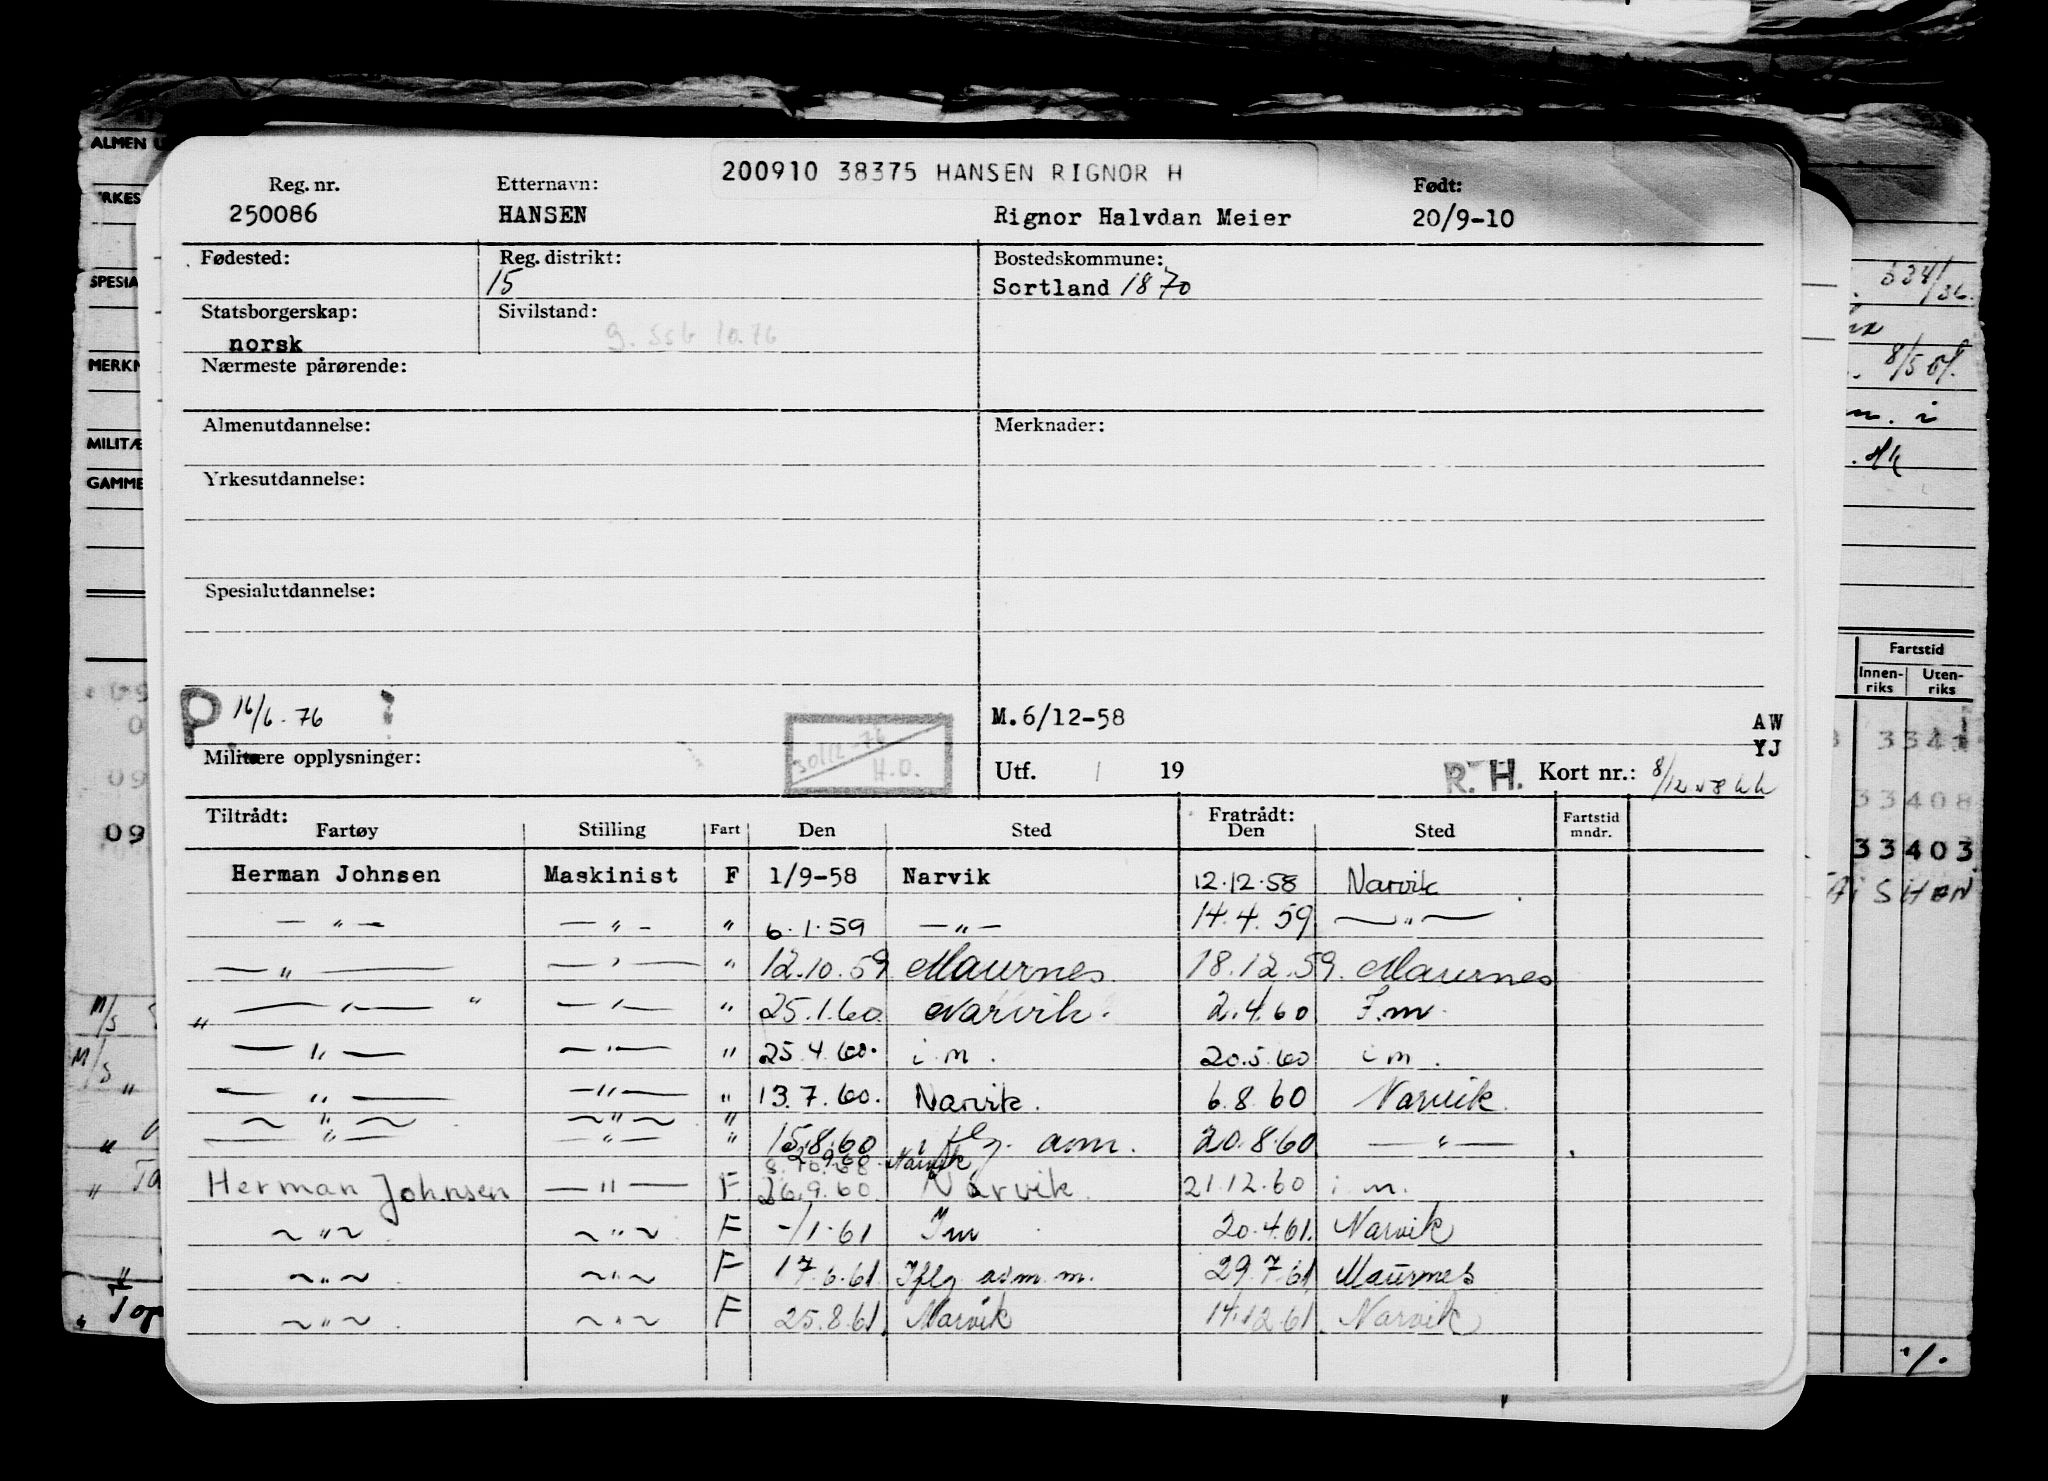 200910 38375 HANSEN RIGNOR H
Reg. nr. Etternavn: Født:
250086 HANSEN Rignor Halvdan Meier 20/9-10
Fødested: Reg. distrikt: Bostedskommune:
15 Sortland 1870
Statsborgerskap: Sivilstand:
norsk g. SSB 10.76
Nærmeste pårørende:
Almenutdannelse: Merknader:
Yrkesutdannelse:
Spesialutdannelse:
P 16/6-76 M.6/12-58 AW
YJ
Militære opplysninger: 30/12-76 H.O. Utf. / 19 R.H. Kort nr.: 8/12 58
Tiltrådt: Fratrådt:
Fartøy Stilling Fart Den Sted Den Sted Fartstid mndr.
Herman Johnsen Maskinist F 1/9-58 Narvik 12.12.58 Narvik
— " — — " — " 6.1.59 — " — 14.4.59 — " —
— " — — " — " 12.10.59 Maurnes 18.12.59. Maurnes
" — " — " — " — " 25.1.60 Narvik. 2.4.60 I.m.
— " — — " — " 25.4.60. i m. 20.5.60 i m.
— " — — " — " 13.7.60. Narvik. 6.8.60 Narvik.
~ " ~ ~ " ~ "
— " — — " — " 15.8.60 i flg. asm. 20.8.60 — " —
Narvik
Herman Johnsen — " — F 26.9.60 Narvik. 21.12.60 i m.
~ " ~ ~ " ~ F -/1-61 Im 20.4.61. Narvik
~ " ~ ~ " ~ F 17.6.61. Iflg asm. m. 29.7.61 Maurnes
~ " ~ ~ " ~ F 25.8.61. Narvik 14.12.61. Narvik
ALMEN
YRKES
SPESIA
MERKN
MILITÆ
GAMME
09
M/S
M/S
334/36.
8/5
m. i
Fartstid
Innen-riks Uten-riks
33408
33403